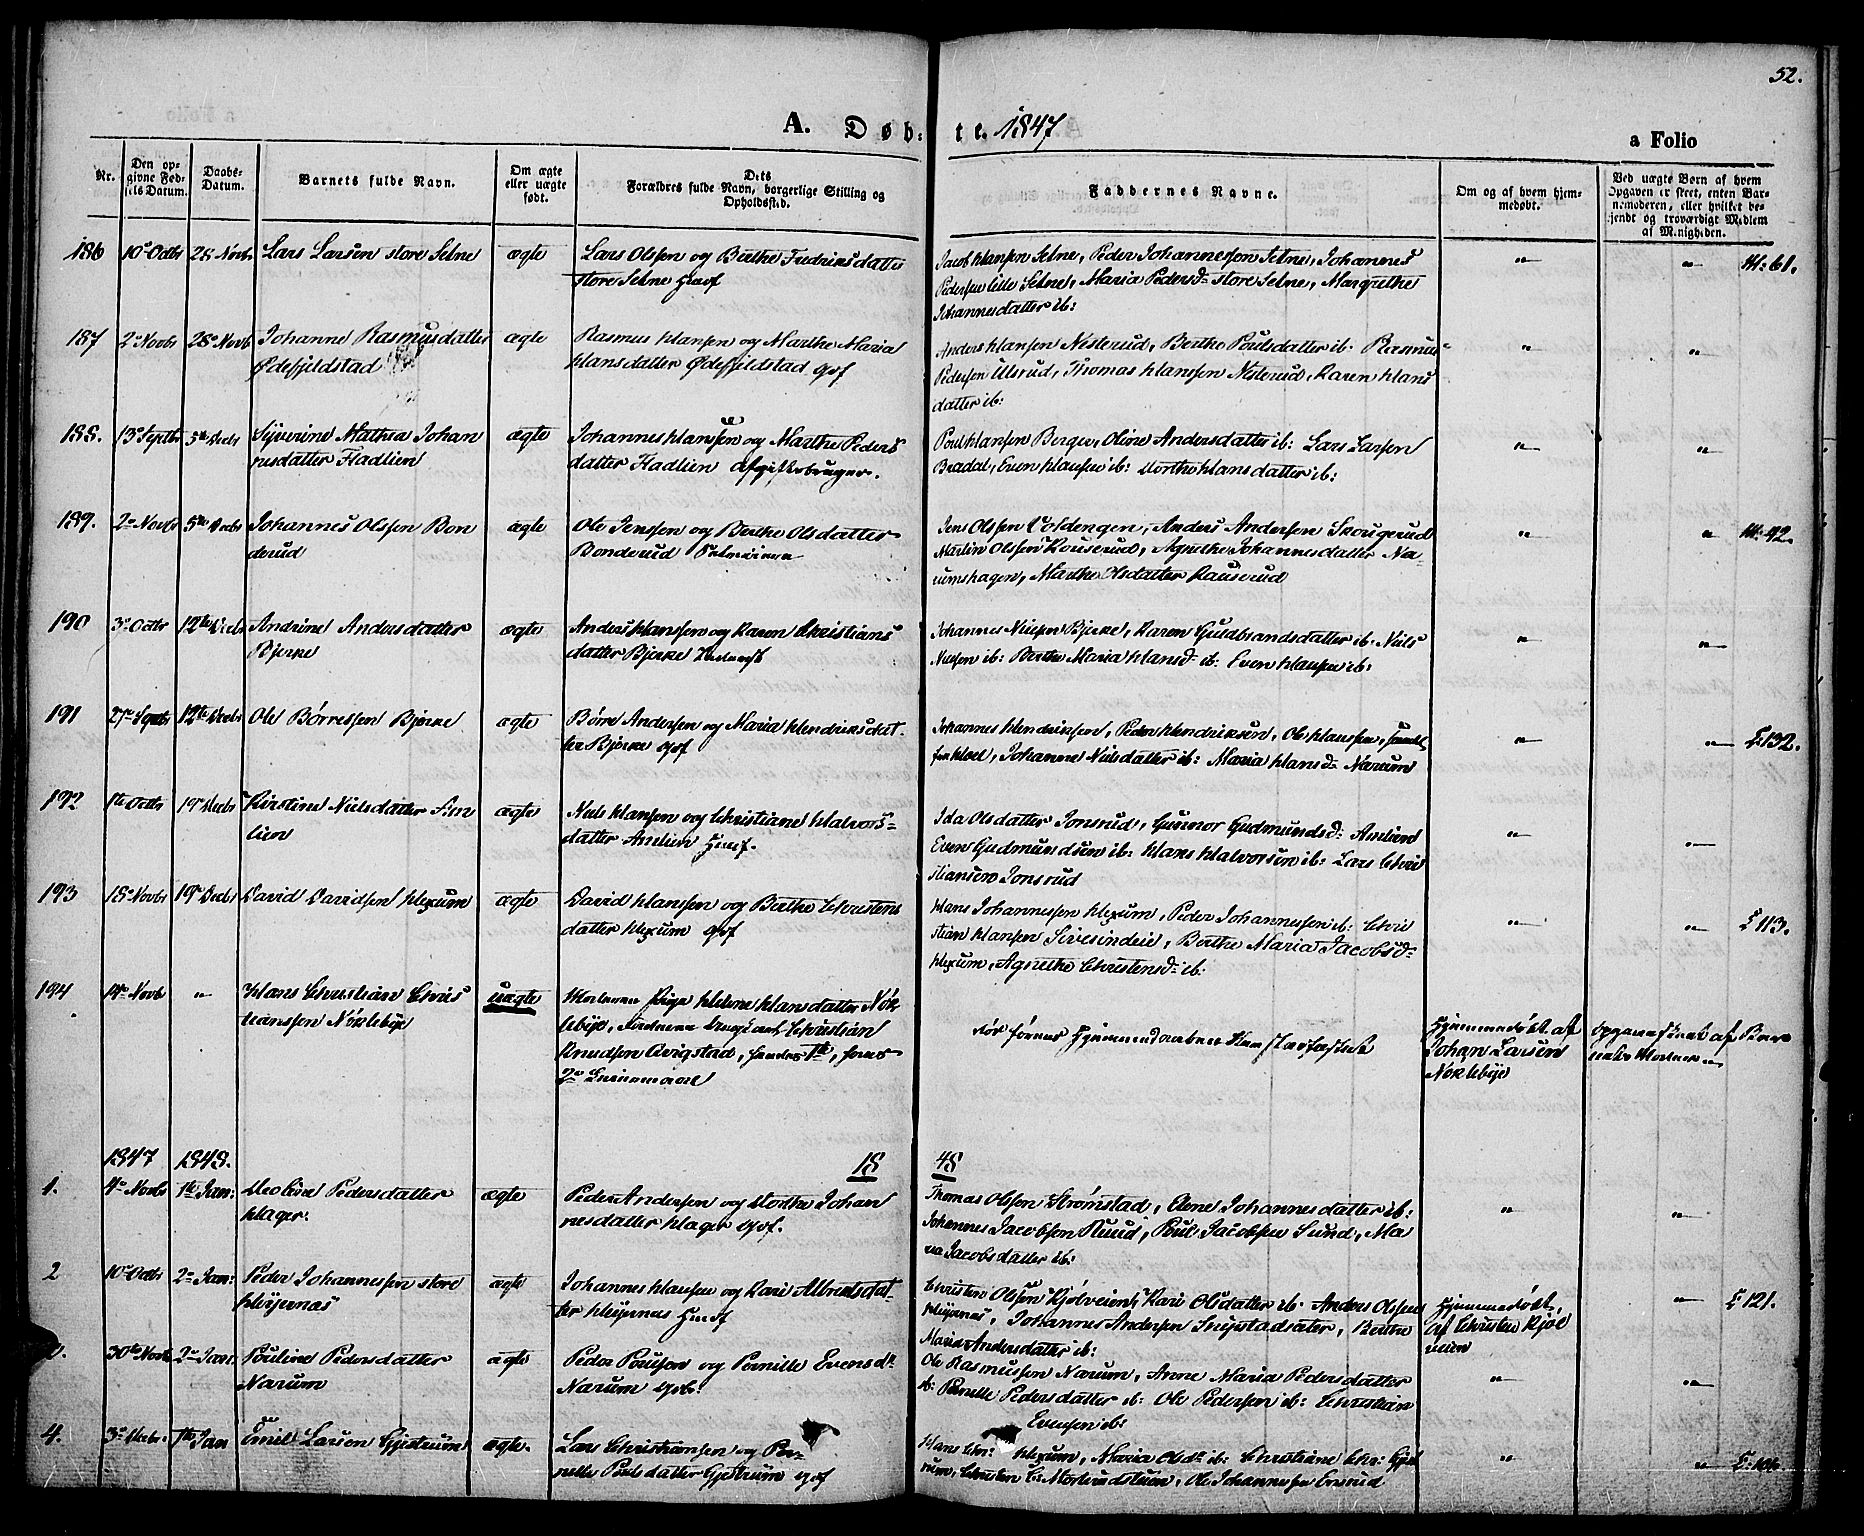 52.
A. Døb- te. 1847
a Folio
Nr.
Den op-
givne Fød-
sels Datum.
Daabs-
Datum.
Barnets fulde Navn.
Om ægte
eller uægte
født.
Dets
Forældres fulde Navn, borgerlige Stilling og
Opholdssted.
Faddernes Navne.
Om og af hvem hjem-
medøbt.
Ved uægte Børn af hvem
Opgaven er skeet, enten Bar-
nemoderen, eller hvilket be-
kjendt og troværdigt Medlem
af Menigheden.
186 10de Octbr 28 Novbr Lars Larsen store Selne ægte Lars Olssen og Berthe Fredriksdatter
store Selne
Jacob Hanssen Selne, Peder Johannessen Selne, Johannes
Pedersen lille Selne, Maria Pedersd: store Selne, Margrethe
Johannesdatter ib:
" " M: 61.
187 2de Novbr 28de Novb Johanne Rasmusdatter
Ødefjeldstad
ægte Rasmus Hansen og Marthe Maria
Hansdatter Ødefjeldstad gbf
Anders Hansen Nesterud, Berthe Poulsdatter ib: Rasmus
Pedersen Ulsrud, Thomas Hanssen Nesterud, Karen Hans
datter ib:
" "
188. 13de Septbr 5te Decbr Syverine Mathea Johan
nesdatter Fladlien
ægte Johannes Hanssen og Marthe Peders
datter Fladlien afgiftsbruger.
Poul Hanssen Berger, Oline Andersdatter ib: Lars Larssen
Bradal, Even Hansen ib: Dorthe Hansdatter ib:
" "
189. 2de Novbr 5te Decbr Johannes Olssen Bon
derud
ægte Ole Jenssen og Berthe Olsdatter
Bonderud
Jens Olssen Coldengen, Anders Andersen Skougerud
Martin Olssen Rouserud, Agnethe Johannesdatter Na-
rumshagen, Marthe Olsdatter Rauserud
" " M: 92.
190 3de Octbr 12te Decbr Andrine Andersdatter
Bjerke
ægte Anders Hanssen og Karen Christians
datter Bjerke
Johannes Nielsen Bjerke, Karen Gudbrandsdatter ib: Niels
Nielsen ib: Berthe Maria Hansd: ib: Even Hansen ib:
" "
191 27de Septbr 12te Decbr Ole Børressen Bjerke ægte Børre Andersen og Maria Hendriksdat-
ter Bjerke gbf
Johannes Hendriksen, Peder Hendriksen, Ole Hanssen,
Johanne Nielsdatter ib: Maria Hansd: Narum
" " L: 132.
192 1te Octbr 19de Decbr Kirstine Nielsdatter Am
lien
ægte Niels Hansen og Christiane Halvors-
datter Amlien
Ida Olsdatter Jonsrud, Gunnor Gudmundsd: Amlien
Even Gudmundsen ib: Hans Halvorsen ib: Lars Chris
tiansen Jonsrud
" "
193 18de Novbr 19de Decbr David Davidsen Hexum ægte David Hanssen og Berthe Christens
datter Hexum gbf
Hans Johannessen Hexum, Peder Johannessen ib: Chris
tian Hansen Sivesindeie, Berthe Maria Jacobsd:
Hexum, Agnethe Christensd: ib:
" " L 113.
194 14de Novb " Hans Christian Chris
tianssen Nørlebye
uægte Pige Helene Hansdatter Nør
lebye, Christian
Knudsen Qvigstad, hendes 1te, hans
2de Leiermaal
døde førend Hjemmedaaben
Hjemmedøbt af
Johan Larsen
Nørlebye
Opgave skeet af Bar
nets Moder
1847 1848. 18 48
1. 4de Novbr 1te Jan: Pedersdatter
Hager.
ægte Peder Andersen og Dorthe Johan
nesdatter Hager gbf.
Thomas Olssen Strømstad, Elene Johannesdatter ib:
Johannes Jacobsen Ruud, Poul Jacobsen Lund, Ma
ria Jacobsdatter ib:
" "
2 10de Octbr 2de Jan: Peder Johannessen store
Heijernæs
ægte Johannes Hansen og Kari Albretsdat-
ter Heijernæs
Christen Olssen Kjølveien, Kari Olsdatter ib: Anders Olssen
Heijernæs, Johannes Andersen Snipstadsæter, Berthe
Maria Andersdatter ib:
Hjemmedøbt,
af Christen Kjøl
veien
" L: 121.
3. 30te Novbr 2de Jan. Pouline Pedersdatter
Narum
ægte Peder Poulsen og Pernille Evensdr
Narum gbr.
Ole Rasmussen Narum, Anne Maria Pedersdatter
ib: Pernille Pedersdatter ib: Ole Pedersen ib: Christian
Evensen ib:
" "
4. 3de Decbr: 7te Jan Emil Larsen Gjestrum ægte. Lars Christiansen og Per-
nille Poulsdatter Gjestrum gbf
Hans Chr: Hexum, Maria Olsdr ib: Christiane Chr: Gjest
rum, Christen C: Morterudstuen, Ole Johannessen Ensrud
" " L: 106